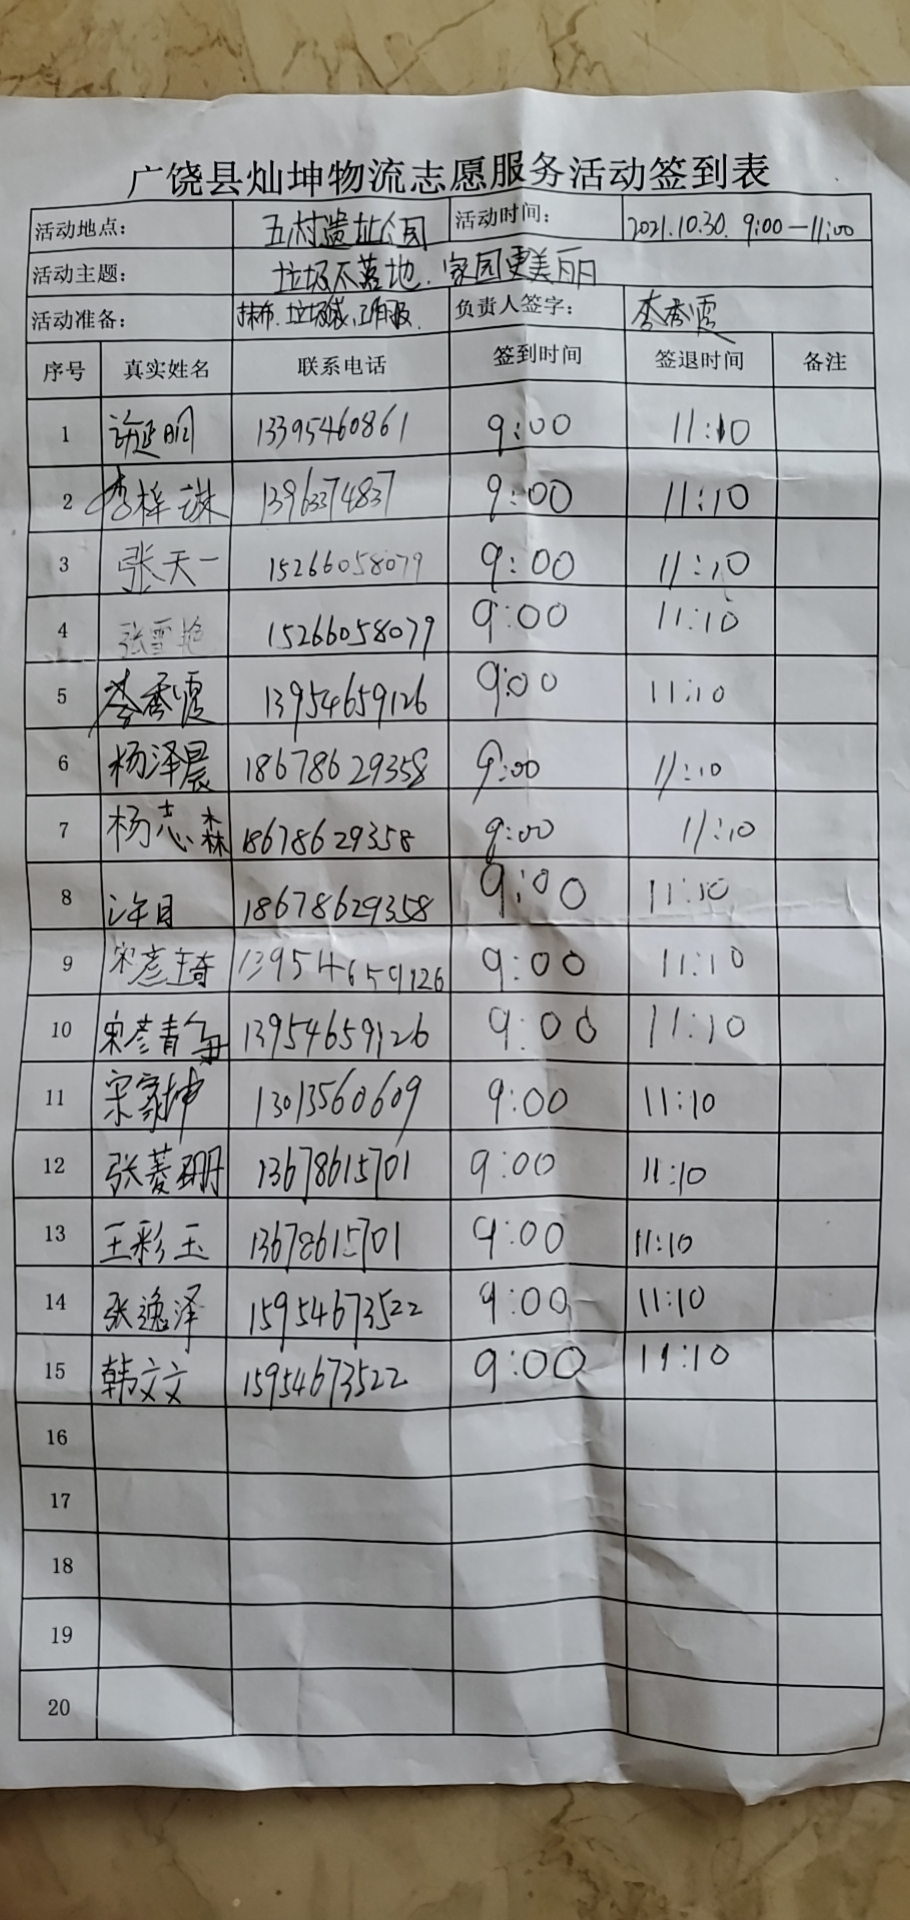 广饶县灿坤物流志愿服务活动签到表
活动地点： 五村遗址公园 活动时间： 2021.10.30. 9:00—11:00
活动主题： 垃圾不落地.家园更美丽
活动准备： 抹布.垃圾袋.工作服. 负责人签字： 李秀霞
序号 真实姓名 联系电话 签到时间 签退时间 备注
1 许延明 13395460861 9:00 11:10
2 李梓琳 13963374837 9:00 11:10
3 张天一 15266058079 9:00 11:10
4 张雪艳 15266058079 9:00 11:10
5 李秀霞 13954659126 9:00 11:10
6 杨泽晨 18678629358 9:00 11:10
7 杨志森 18678629358 9:00 11:10
8 18678629358 9:00 11:10
9 宋彦琦 13954659126 9:00 11:10
10 宋彦静 13954659126 9:00 11:10
11 宋家坤 13013560609 9:00 11:10
12 张菱珊 13678615701 9:00 11:10
13 王彩玉 13678615701 9:00 11:10
14 张逸泽 15954673522 9:00 11:10
15 韩文文 15954673522 9:00 11:10
16
17
18
19
20